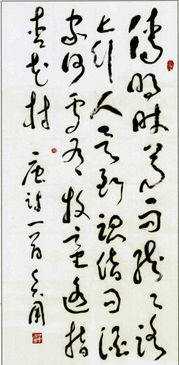 清明時節雨紛紛路
上行人欲斷魂借問酒
家何處有牧童遙指
杏花村 唐詩一首